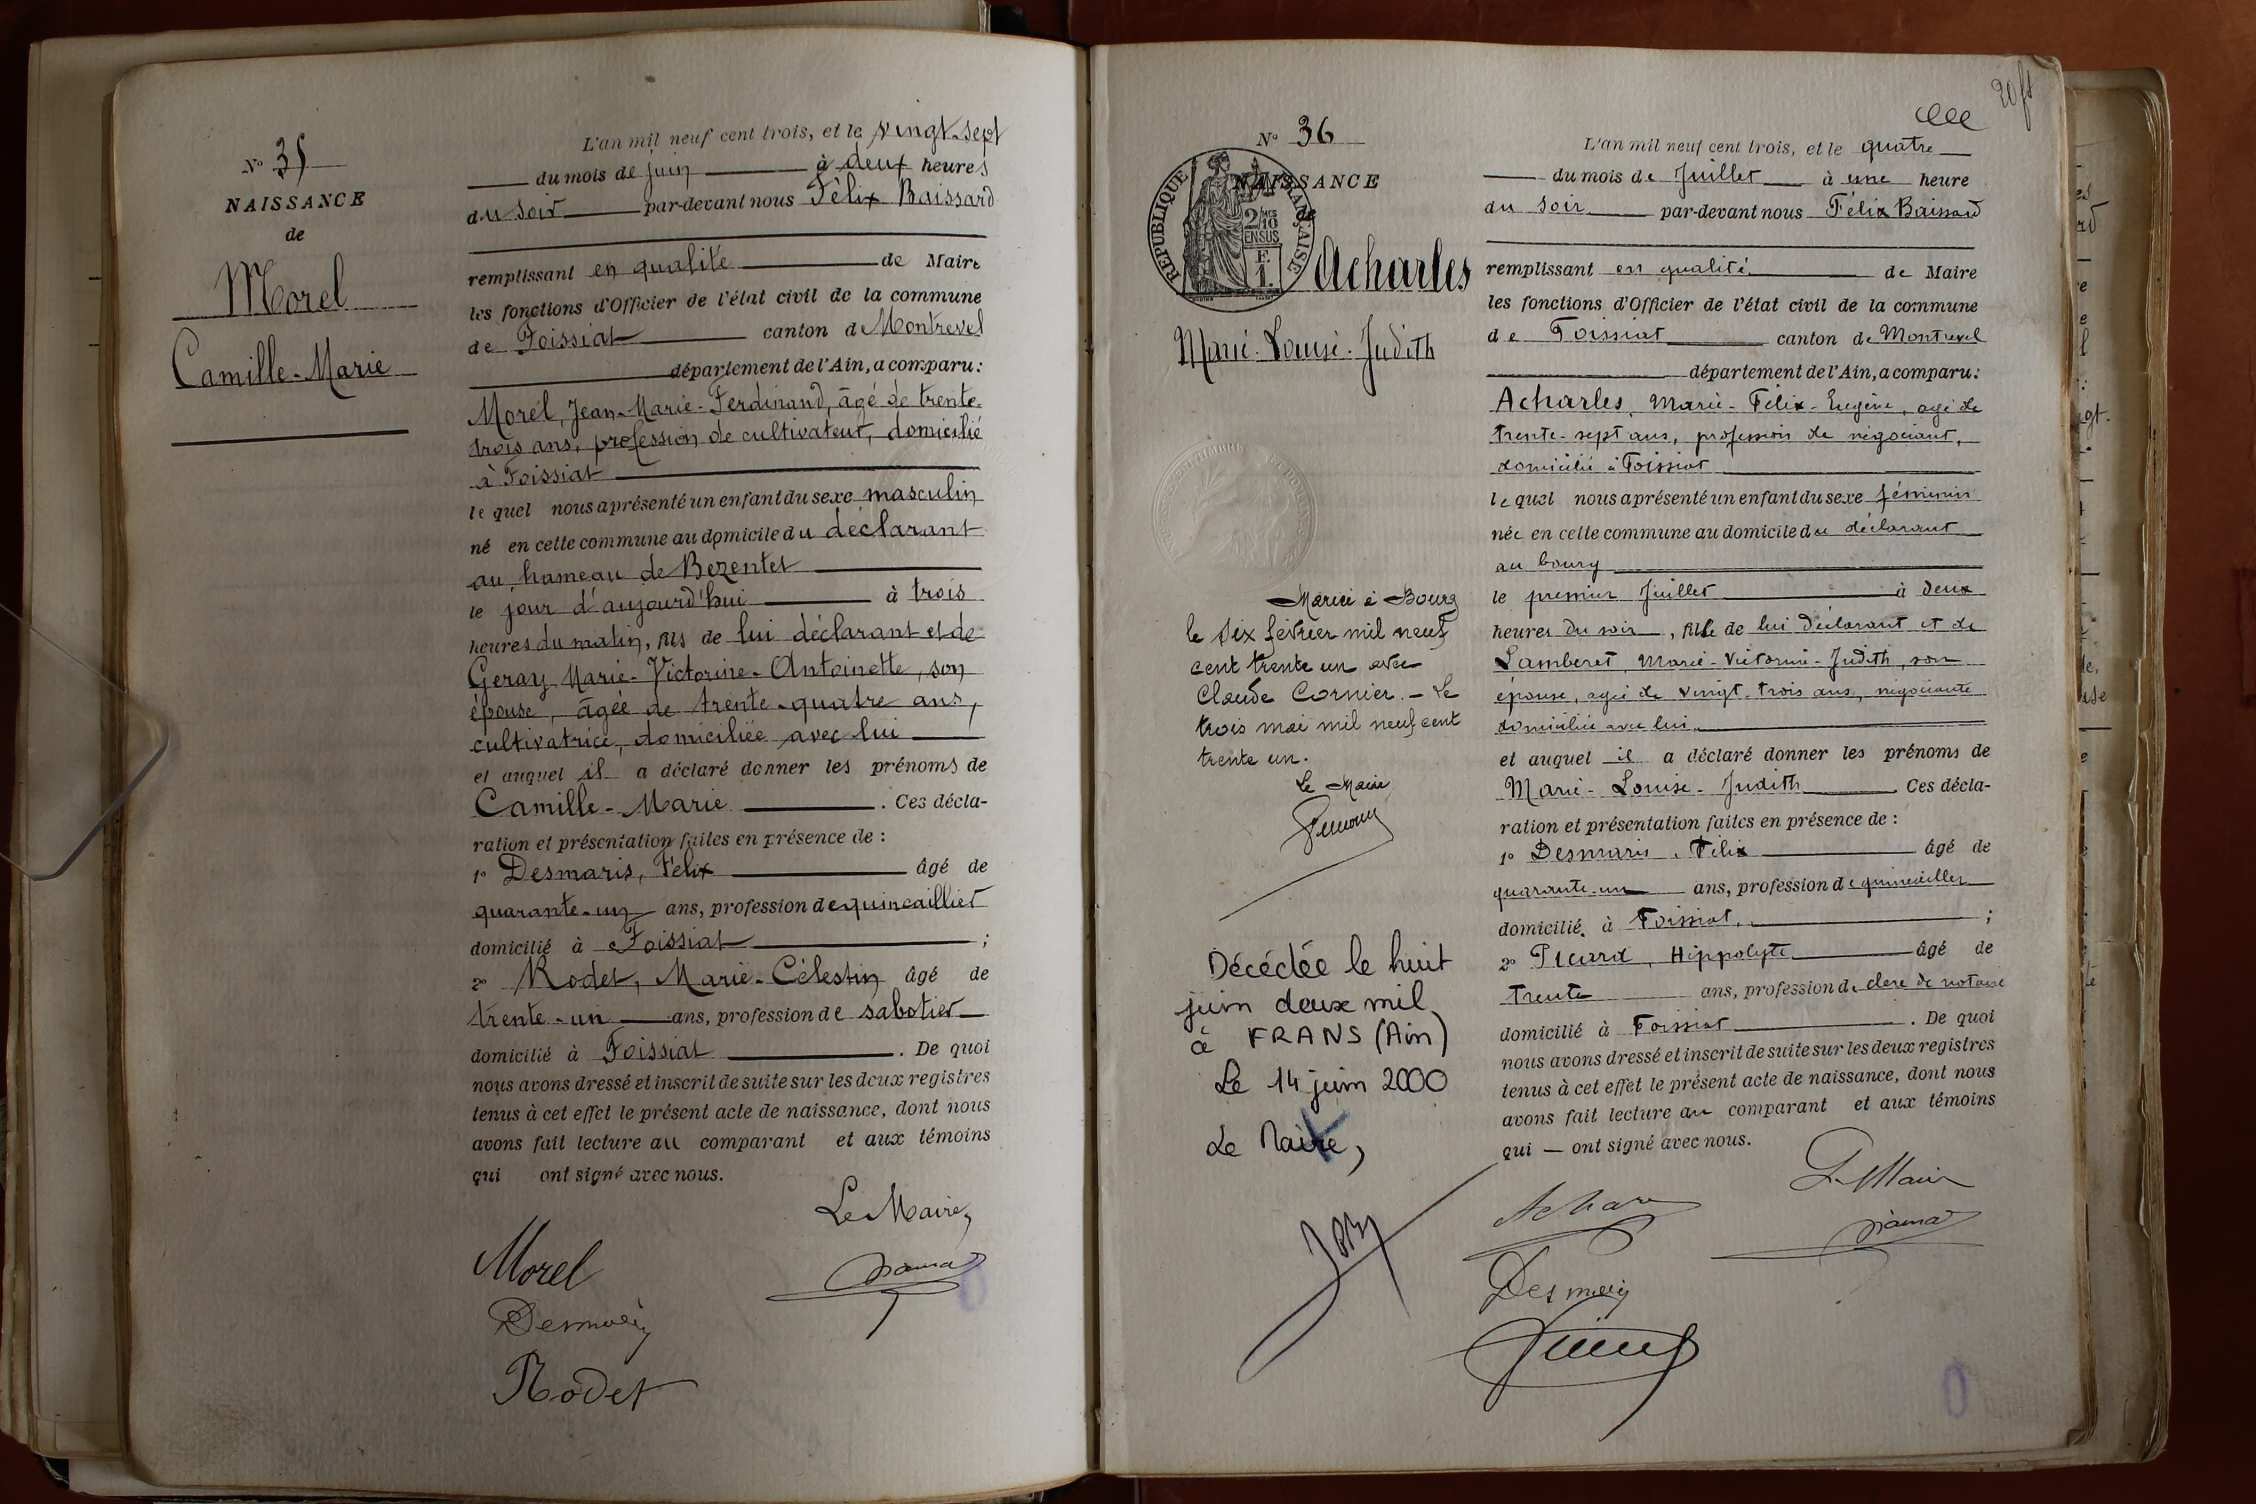 N° 35
NAISSANCE
de
Morel
Camille-Marie
L'an mil neuf cent trois, et le vingt-sept
du mois de juin à deux heures
du soir par-devant nous Félix Baissard
remplissant en qualité de Maire
les fonctions d'Officier de l'état civil de la commune
de Foissiat canton de Montrevel
département de l'Ain, a comparu :
Morel, Jean-Marie-Ferdinand, âgé de trente-
trois ans, profession de cultivateur, domicilié
à Foissiat
lequel nous a présenté un enfant du sexe masculin
né en cette commune au domicile du déclarant
au hameau de Bezentet
le jour d'aujourd'hui à trois
heures du matin, fils de lui déclarant et de
Geray Marie-Victorine-Antoinette, son
épouse, âgée de trente-quatre ans,
cultivatrice, domiciliée avec lui
et auquel il a déclaré donner les prénoms de
Camille-Marie . Ces décla-
ration et présentation faites en présence de :
1° Desmaris, Félix âgé de
quarante-un ans, profession de quincaillier
domicilié à Foissiat ;
2° Rodet, Marie-Célestin âgé de
trente-un ans, profession de sabotier
domicilié à Foissiat . De quoi
nous avons dressé et inscrit de suite sur les deux registres
tenus à cet effet le présent acte de naissance, dont nous
avons fait lecture au comparant et aux témoins
qui ont signé avec nous.
Le Maire,
Morel
Desmaris
Rodet
20 ft
N° 36
NAISSANCE
de
REPUBLIQUE FRANÇAISE
2/10
EN SUS
F.
1.
Acharles
Marie-Louise-Judith
Mariée à Bourg
le six février mil neuf
cent trente un avec
Claude Cornier. - Le
trois mai mil neuf cent
trente un.
Le Maire
Décédée le huit
juin deux mil
à FRANS (Ain)
Le 14 juin 2000
Le Maire,
L'an mil neuf cent trois, et le quatre
du mois de Juillet à une heure
du soir par-devant nous Félix Baissard
remplissant en qualité de Maire
les fonctions d'Officier de l'état civil de la commune
de Foissiat canton de Montrevel
département de l'Ain, a comparu :
Acharles, Marie-Félix-Eugène, âgé de
trente-sept ans, profession de négociant,
domicilié à Foissiat
lequel nous a présenté un enfant du sexe féminin
née en cette commune au domicile du déclarant
au bourg
le premier Juillet à deux
heures du soir, fille de lui déclarant et de
Lamberet, Marie-Victorine-Judith, son
épouse, agée de vingt-trois ans, négociante
domiciliée avec lui.
et auquel il a déclaré donner les prénoms de
Marie-Louise-Judith . Ces décla-
ration et présentation faites en présence de :
1° Desmaris, Félix âgé de
quarante-un ans, profession de quincaillier
domicilié à Foissiat. ;
2° Picard, Hippolyte âgé de
trente ans, profession de clerc de notaire
domicilié à Foissiat . De quoi
nous avons dressé et inscrit de suite sur les deux registres
tenus à cet effet le présent acte de naissance, dont nous
avons fait lecture au comparant et aux témoins
qui — ont signé avec nous.
Le Maire
Desmaris